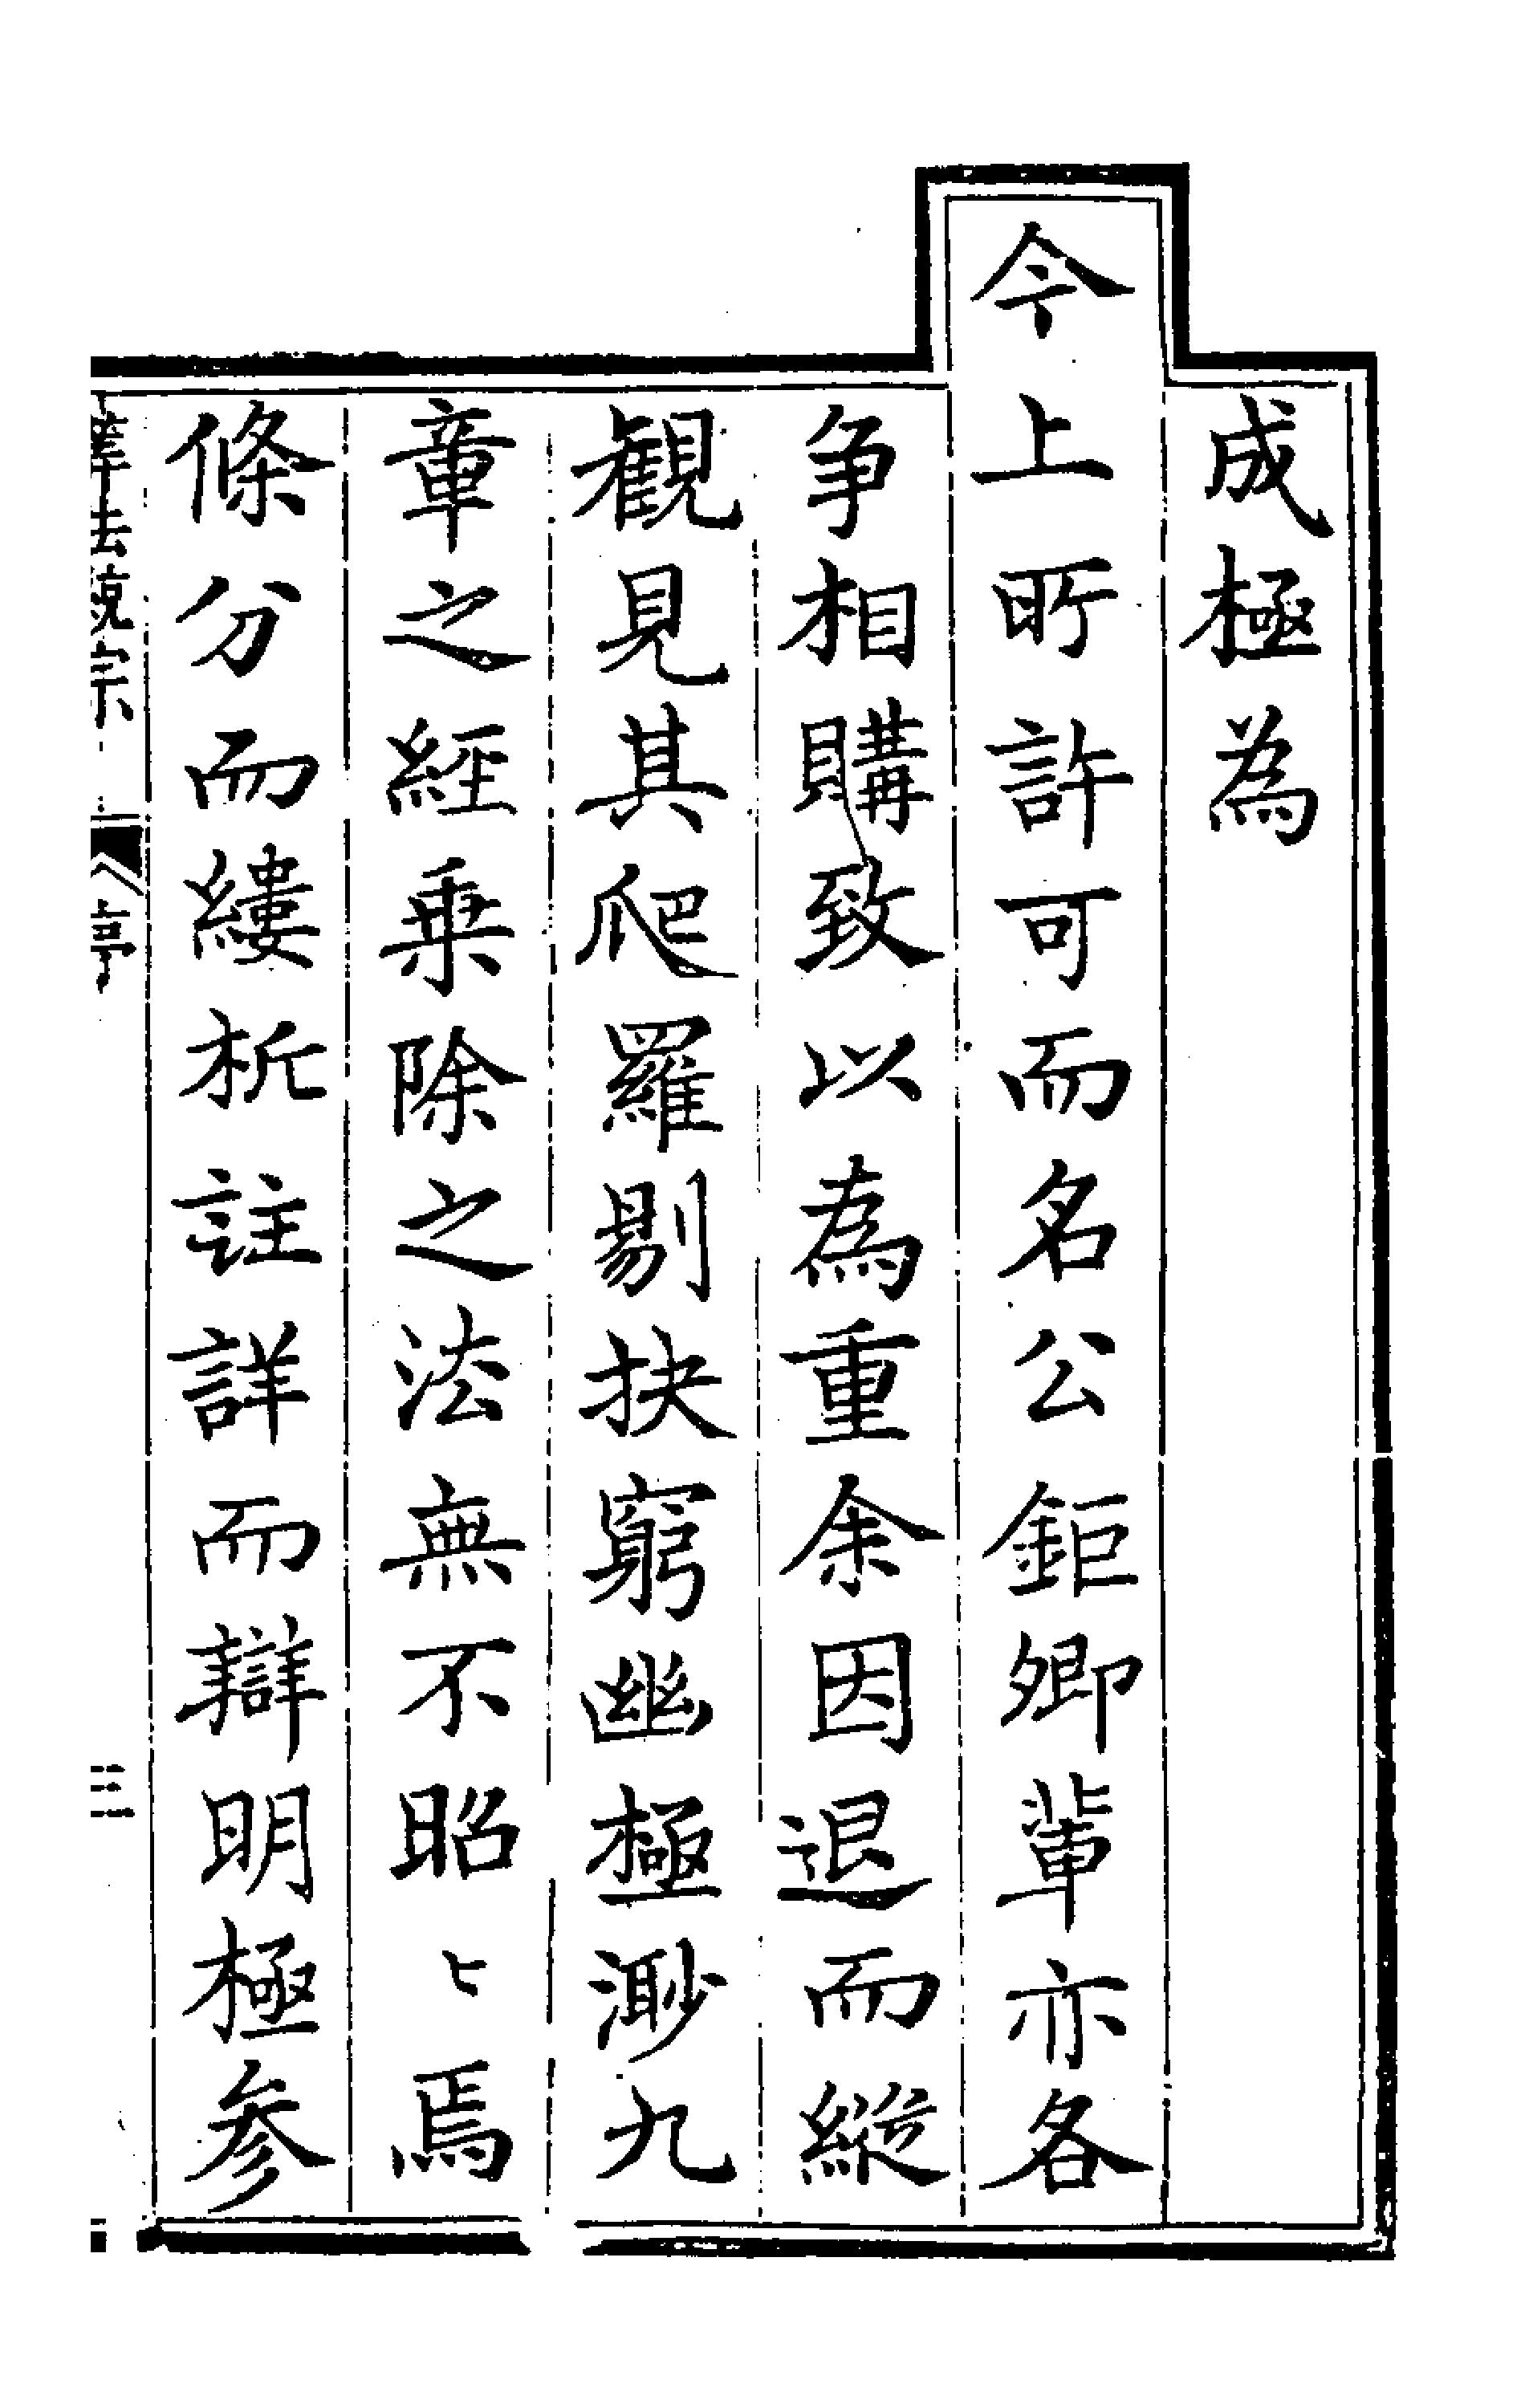 成極為
今上所許可而名公鉅卿輩亦各
争相購致以為重余因退而縱
觀見其爬羅剔抉窮幽極渺九
章之經乗除之法無不昭〻焉
條分而縷析註詳而辯明極参
筭法統宗 序 三